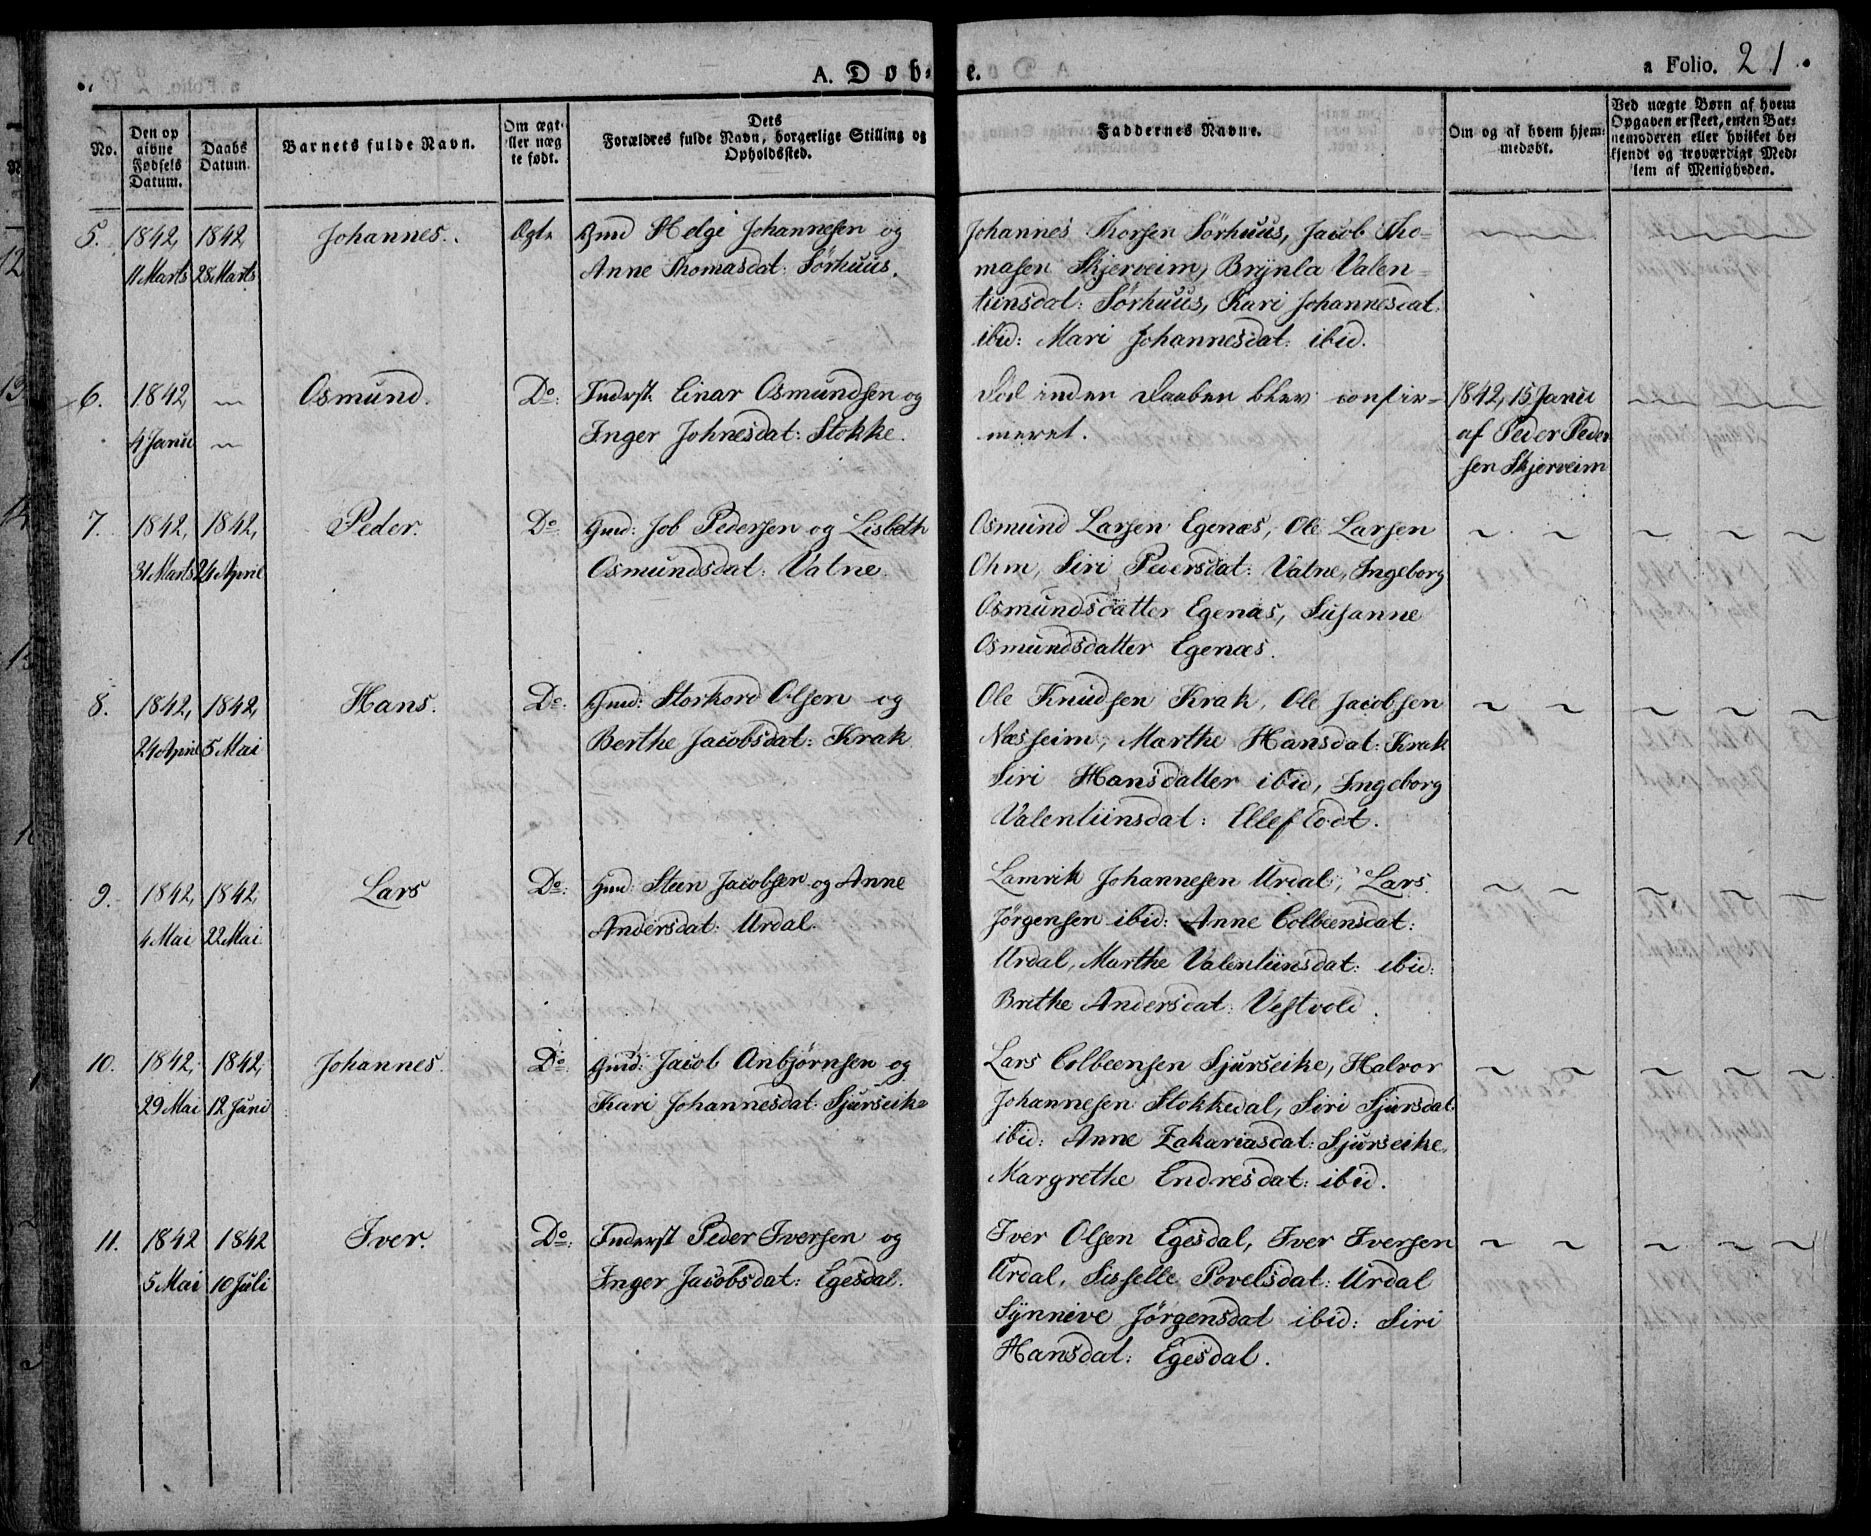 A. Døb- e.
a Folio. 21.
No.
Den op
givne
Fødsels
Datum.
Daabs
Datum.
Barnets fulde Navn.
Om ægt-
eller næg
te født.
Dets
Forældres fulde Navn, borgerlige Stilling og
Opholdssted.
Faddernes Navne.
Om og af hvem hjem-
medøbt.
Ved uægte Børn af hvem
Opgaven er skeet, enten Bar-
nemoderen eller hvilket be-
kjendt og troværdigt Med-
lem af Menigheden.
5. 1842, 1842, Johannes. Ægte Gmd Helge Johannesen og Johannes Thorsen Sørhuus, Jacob Tho-
11 Marts 28 Marts Anne Thomasdat: Sørhuus. masen Skjerveim, Brynla Valen-
tiinsdat: Sørhuus, Kari Johannesdat:
ibid: Mari Johannesdat: ibid.
6. 1842 Osmund. Do: Inderst. Einar Osmundsen og Död inden Daaben blev confir- 1842, 15 Janu
4 Janu Inger Johnesdat: Stokke. meret. af Peder Peder
sen Skjerveim
7. 1842, 1842, Peder. Do Gmd: Job Pedersen og Lisbeth Osmund Larsen Egenæs, Ole Larsen
31 Marts 24 April Osmundsdat: Vatne. Ohm, Siri Pedersdat: Vatne, Ingeborg
Osmundsdatter Egenæs, Susanne
Osmundsdatter Egenæs.
8. 1842, 1842, Hans. Do: Gmd: Storkord Olsen og Ole Knudsen Krak, Ole Jacobsen
24 April 5 Mai Berthe Jacobsdat: Krak Næsheim, Marthe Hansdat: Krak
Siri Hansdatter ibid, Ingeborg
Valentiinsdat: Elleflodt.
9. 1842, 1842, Lars Do: Gmd: Steen Jacobsen og Anne Lamrik Johannesen Urdal, Lars
4 Mai 22 Mai Andersdat: Urdal. Jørgensen ibid: Anne Colbeensdat:
Urdal, Marthe Valentiinsdat: ibid:
Brithe Andersdat: Vestvold.
10. 1842, 1842, Johannes. Do. Gmd: Jacob Anbjørnsen og Lars Colbeensen Sjurseike, Halvor
29 Mai 12 Juni Kari Johannesdat: Sjurseike Johannesen Stokkedal, Siri Sjursdat:
ibid: Anne Zakariasdat: Sjurseike,
Margrethe Endresdat: ibid.
11. 1842 1842 Iver. Do: Inderst Peder Iversen og Iver Olsen Egesdal, Iver Iversen
5 Mai 10 Juli Inger Jacobsdat: Egesdal. Urdal, Sisselle Povelsdat: Urdal
Synneve Jørgensdat ibid: Siri
Hansdat: Egesdal.